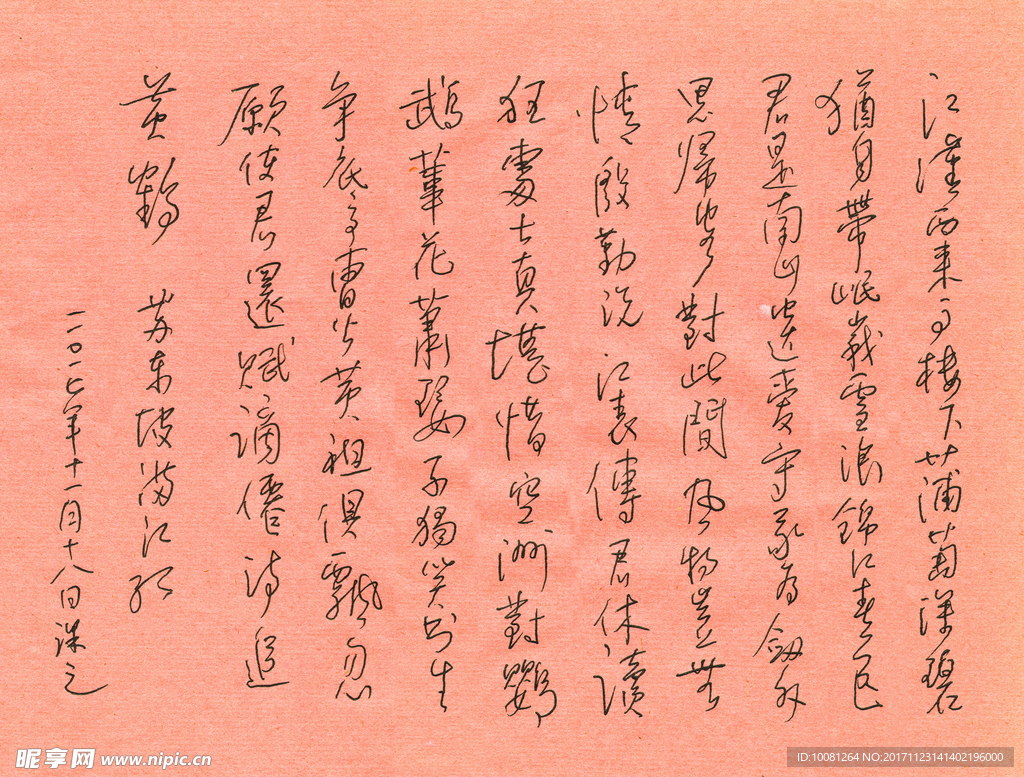 江漢西来高樓下蒲萄深碧
猶自帶岷峨雪浪錦江春色
君是南山遺愛守我為劍外
思歸客對此間風物豈無
情殷勤說江表傳君休讀
狂處士真堪惜空洲對鸚
鵡葦花蕭瑟不獨笑書生
爭底事曹公黄祖俱飄忽
願使君還賦謫僊詩追
黄鶴 苏东坡满江红
二〇一七年十一月十八日
昵享网 www.nipic.cn
ID:10081264 NO:20171123141402196000